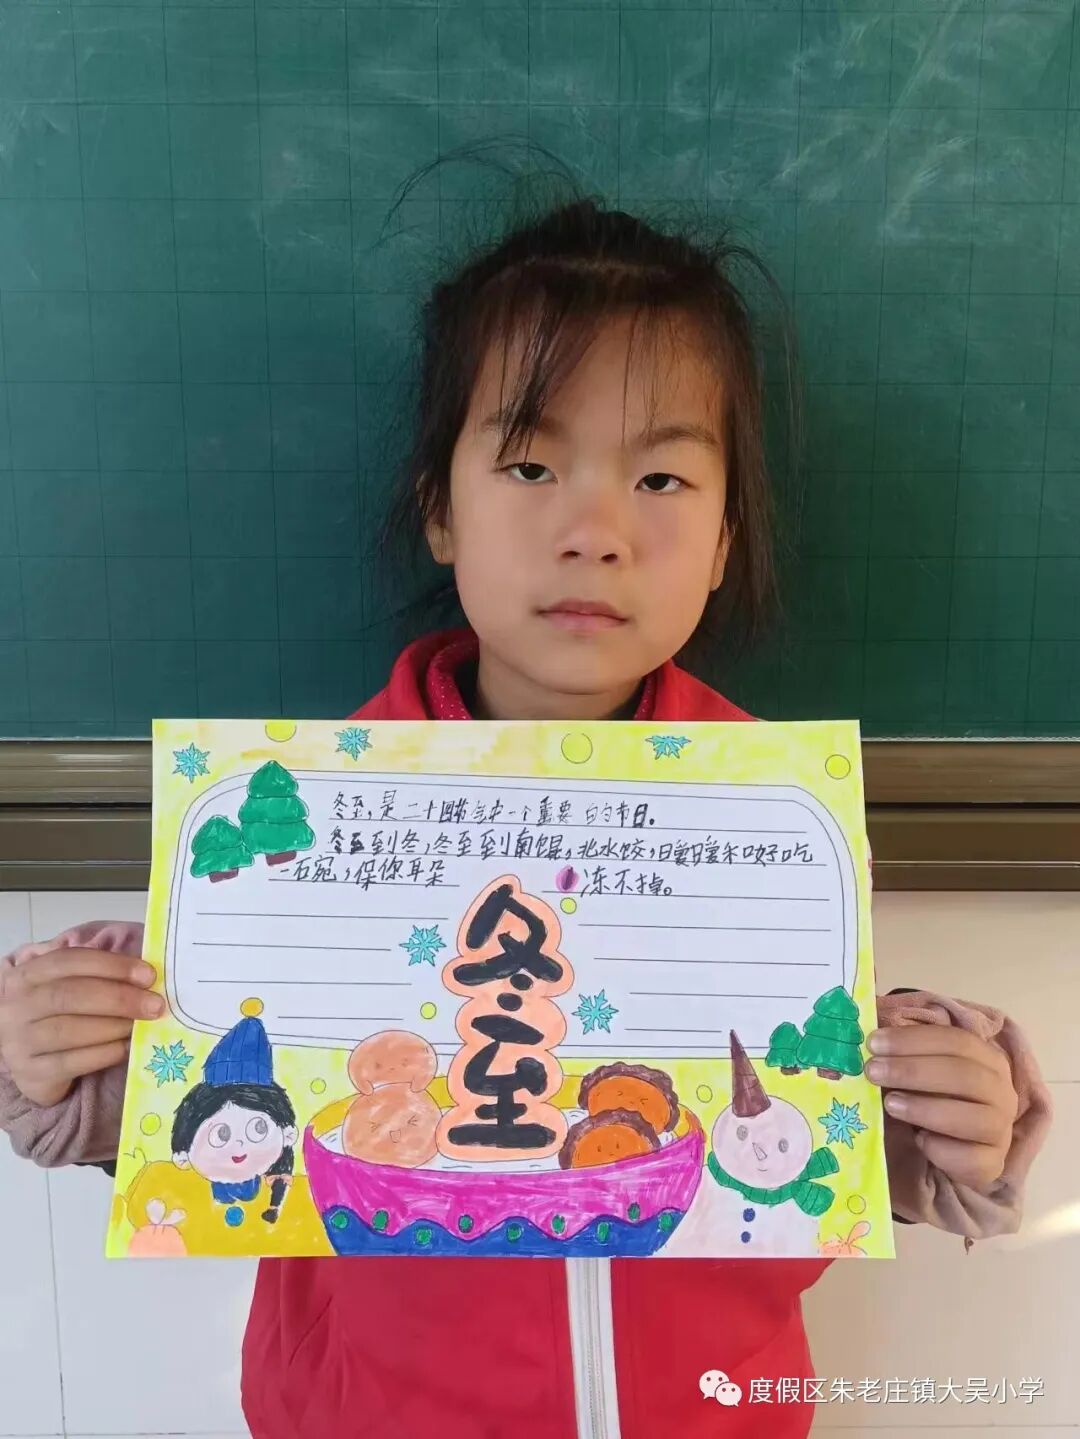 冬至,是二十四节气中一个重要的节日。
冬至到冬,冬至到南馄,北水饺,暖暖和好吃
一石宛,保你耳朵 冻不掉。
冬至
度假区朱老庄镇大吴小学